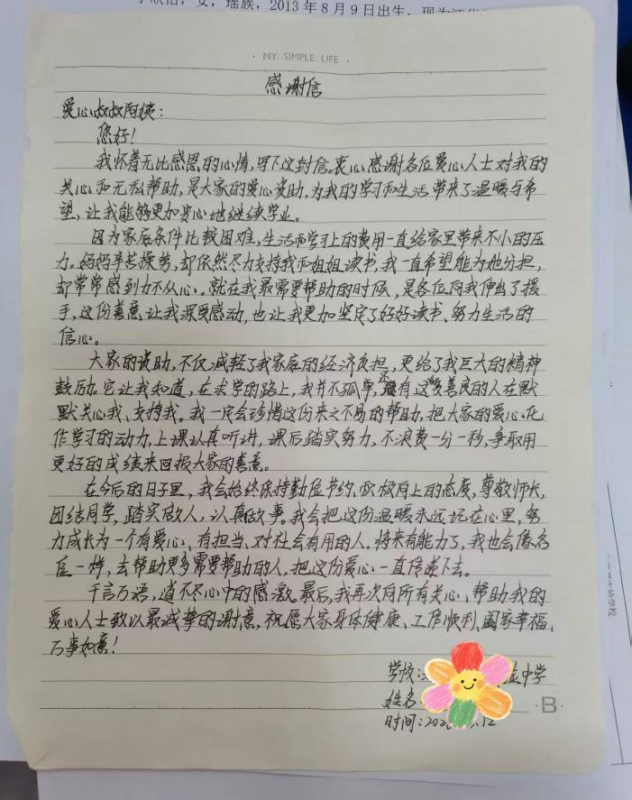 女，瑶族，2013年8月9日出生，现为江华
· MY SIMPLE LIFE ·
感谢信
爱心叔叔阿姨：
您好！
我怀着无比感恩的心情，写下这封信。衷心感谢各位爱心人士对我的
关心和无私帮助，是大家的爱心资助，为我的学习和生活带来了温暖与希
望，让我能够更加安心地继续学业。
因为家庭条件比较困难，生活和学习上的费用一直给家里带来不小的压
力。妈妈辛苦操劳，却依然尽力支持我和姐姐读书，我一直希望能为他分担，
却常常感到力不从心。就在我最需要帮助的时候，是各位向我伸出了援
手，这份善意让我深受感动，也让我更加坚定了好好读书、努力生活的
信心。
大家的资助，不仅减轻了我家庭的经济负担，更给了我巨大的精神
鼓励。它让我知道，在求学的路上，我并不孤单，还有这么多善良的人在默
默关心我、支持我。我一定会珍惜这份来之不易的帮助，把大家的爱心化
作学习的动力，上课认真听讲，课后踏实努力，不浪费一分一秒，争取用
更好的成绩来回报大家的善意。
在今后的日子里，我会始终保持勤俭节约、积极向上的态度，尊敬师长，
团结同学，踏实做人，认真做事。我会把这份温暖永远记在心里，努
力成长为一个有爱心、有担当、对社会有用的人。将来有能力了，我也会像各
位一样，去帮助更多需要帮助的人，把这份爱心一直传递下去。
千言万语，道不尽心中的感激。最后，我再次向所有关心、帮助我的
爱心人士致以最诚挚的谢意，祝愿大家身体健康、工作顺利、阖家幸福、
万事如意！
学校： 中学
姓名
时间：202 .12
B
学校